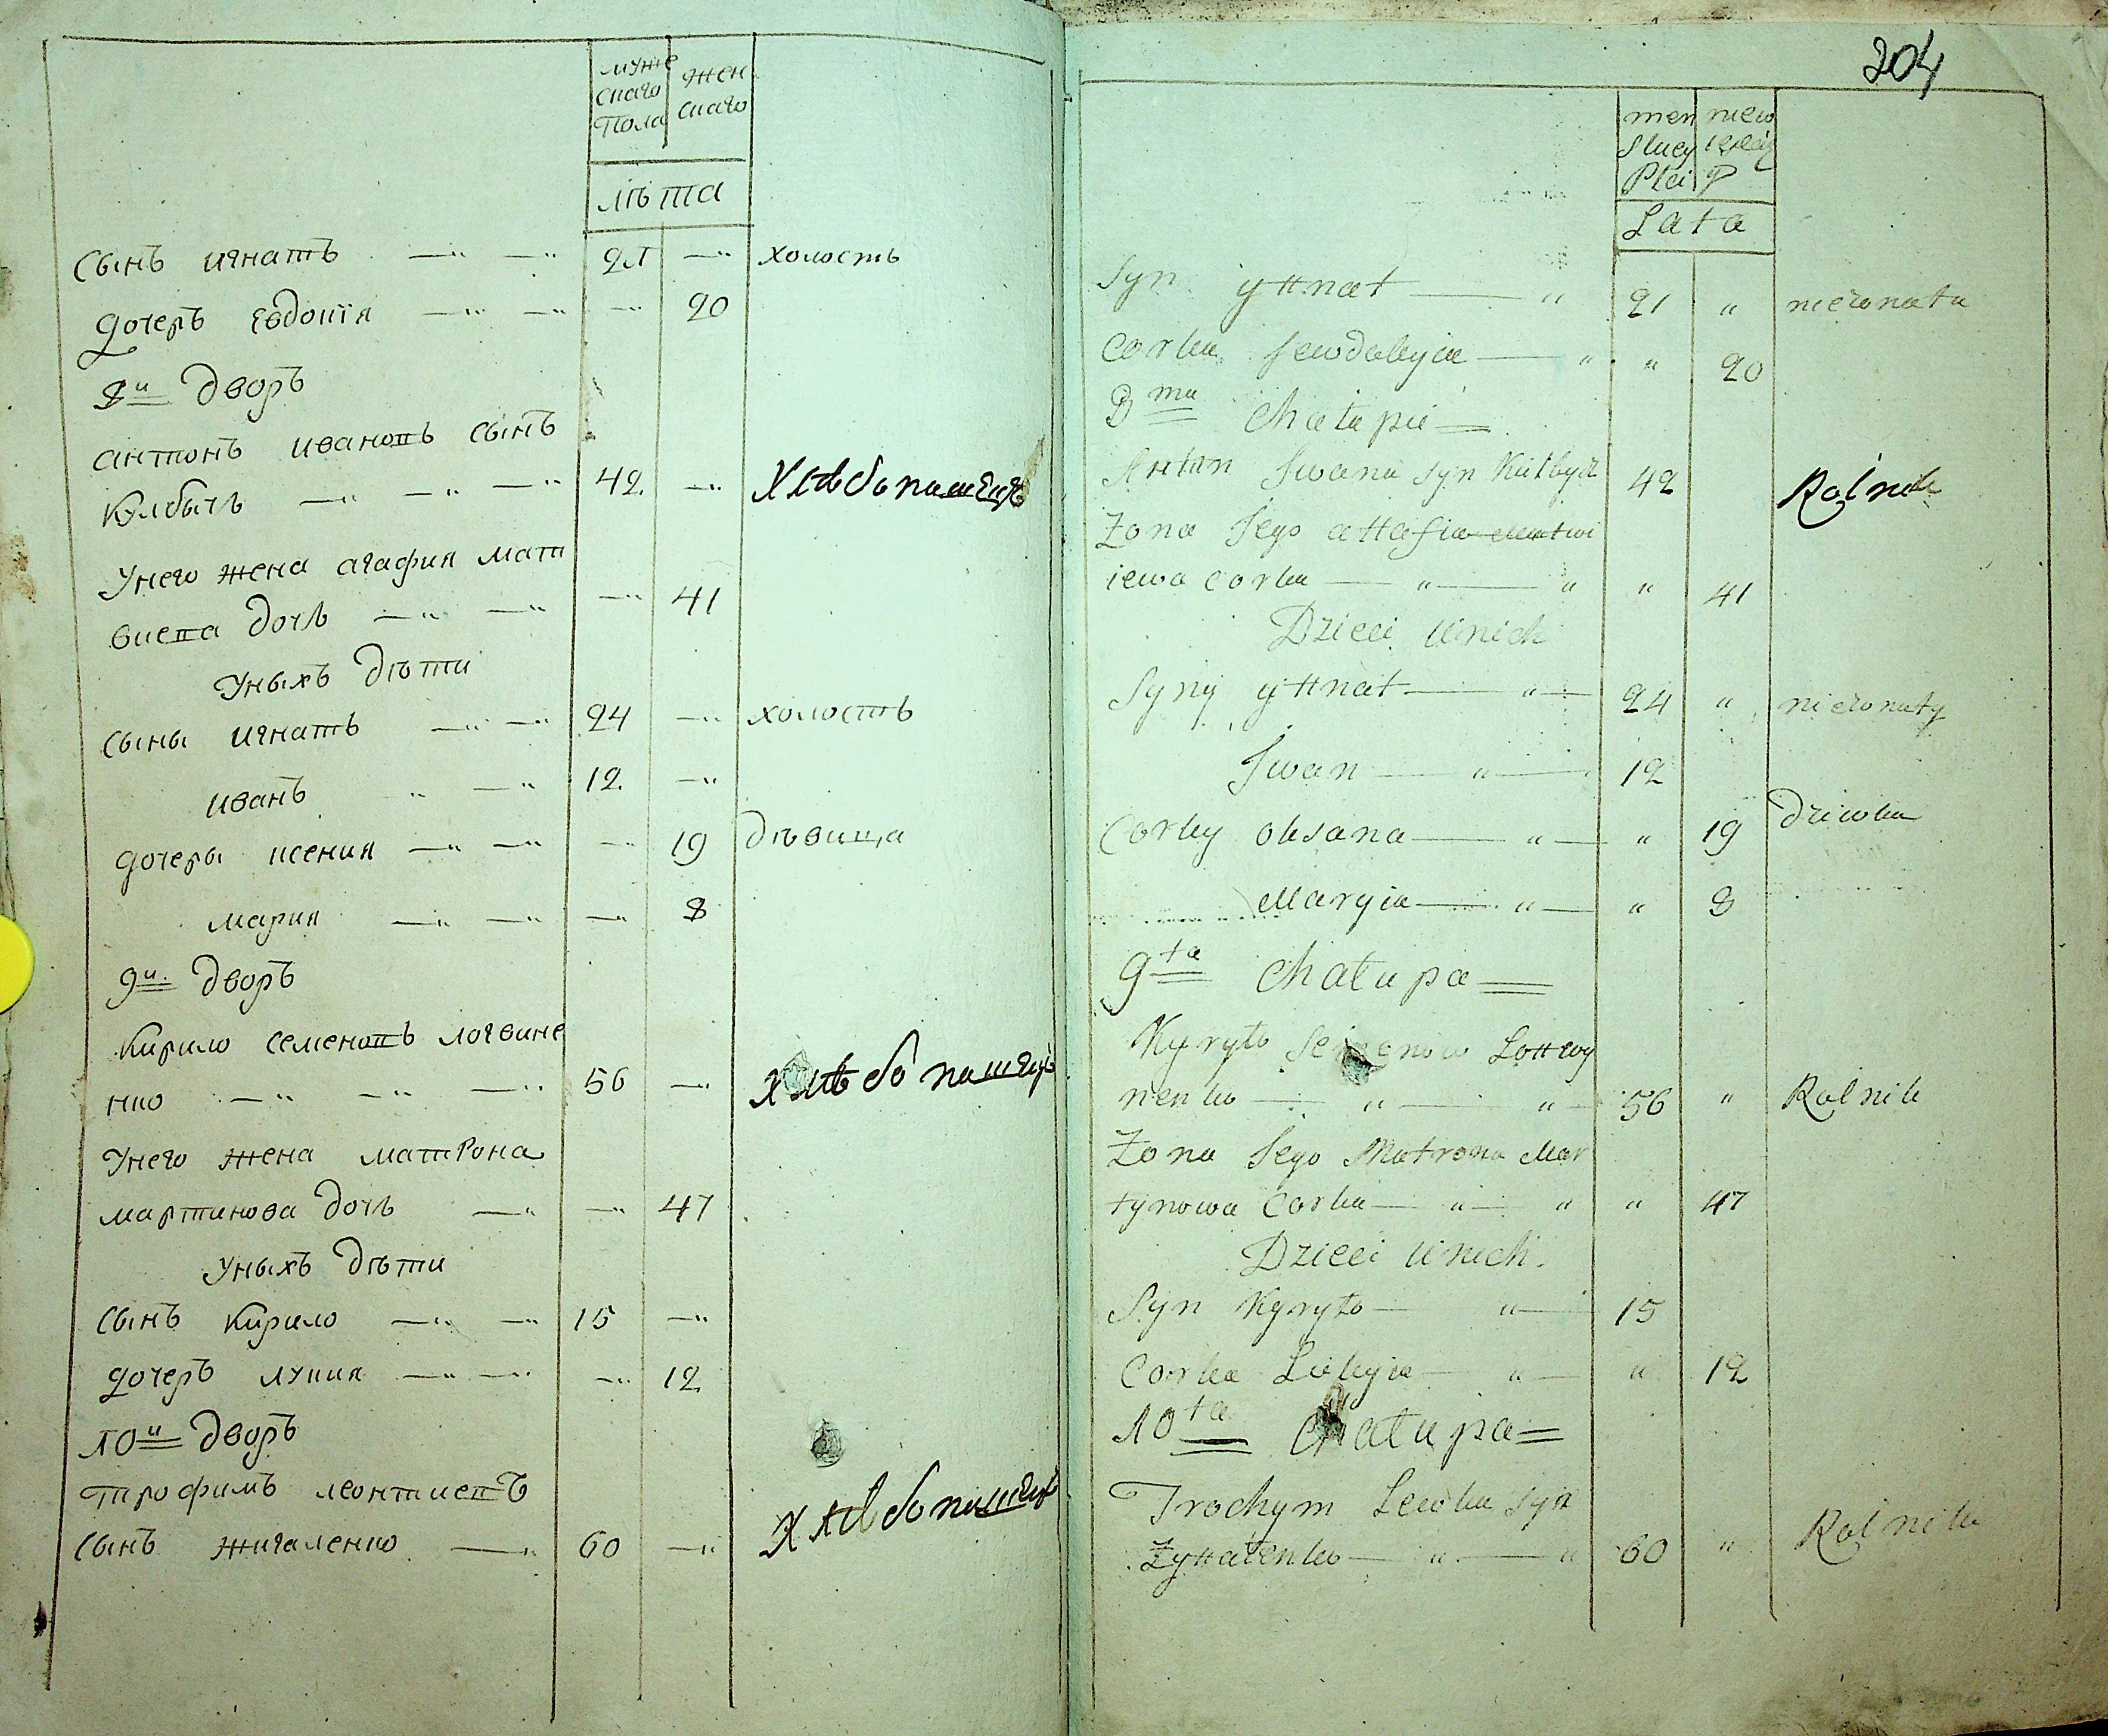 муже
скаго
Пола
жен
скаго
лѣта
сынъ игнатъ —„ —„ 21 —„ холостъ
дочеръ евдокія —„ —„ —„ 20
8й дворъ
антонъ ивановъ сынъ
Колбычъ —„ —„ —„ 42. —„ Хлѣбопашецъ
Унего жена агафия мат
виева дочь —„ —„ —„ 41
Уныхъ дѣти
сыны игнатъ —„ —„ 24 —„ холостъ
иванъ „ —„ 12. —„
дочеры ксения —„ —„ —„ 19 дѣвица
мария —„ —„ —„ 8
9й дворъ
Кирило семеновъ логвине
нко —„ —„ —„ 56 —„ хлѣбопашецъ
Унего жена матрона
мартинова дочь —„ —„ 47
Уныхъ дѣти
сынъ Кирило —„ —„ 15 —„
дочеръ лукия —„ —„ —„ 12
10й дворъ
трофимъ леонтиевъ
сынъ жигаленко —„ 60 —„ Хлѣбопашецъ
204
men
skiey
Płci
niew
iesciey
P
Lata
Syn yHnat — „ 21 „ niezonata
Corka Jewdokyia — „ „ 20
8ma Chałupa
Anton Iwana syn Kułbycz 42 Rolnik
Zona Jego aHafia Matwi
iewa corka — „ — „ „ 41
Dzieci u nich
Syny yHnat — „ — 24 „ niezonaty
Iwan — „ — 12
Corky oksana — „ — „ 19 dziwka
Maryia — „ — „ 8
9ta Chałupa
Kyryło Semenow LoHwy
nenko — „ — „ — 56 „ Rolnik
Zona Jego Matrona Mar
tynowa Corka — „ — „ „ 47
Dzieci u nich.
Syn Kyryło — „ — 15
Corka Łukyia — „ — „ 12
10ta Chałupa
Trochym Lewka syn
ZyHalenko — „ — „ 60 „ Rolnik